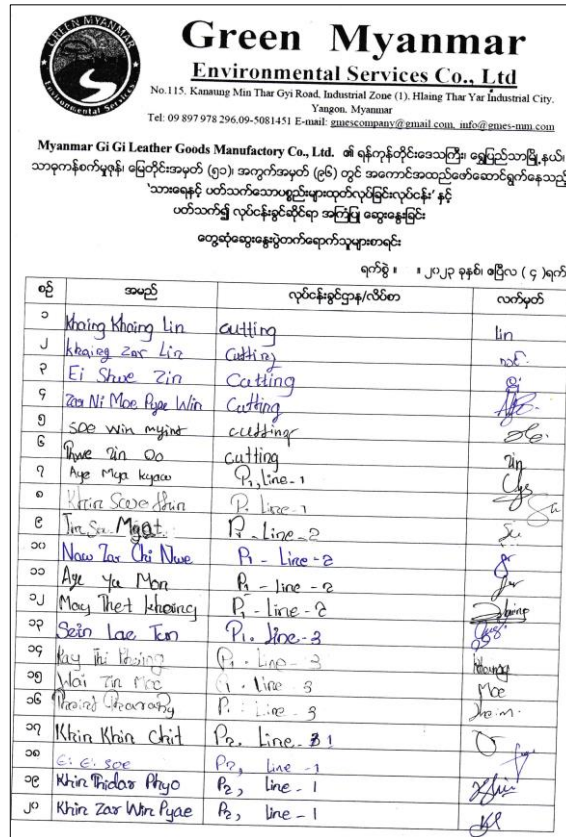 GREEN MYANMAR
Environmental Services
Green Myanmar
Environmental Services Co., Ltd
No.115, Kanaung Min Thar Gyi Road, Industrial Zone (1), Hlaing Thar Yar Industrial City.
Yangon, Myanmar
Tel: 09 897 978 296.09-5081451 E-mail: gmescompany@gmail.com, info@gmes-mm.com
Myanmar Gi Gi Leather Goods Manufactory Co., Ltd. ၏ ရန်ကုန်တိုင်းဒေသကြီး၊ ရွှေပြည်သာမြို့နယ်၊
သာဓုကန်စက်မှုဇုန်၊ မြေတိုင်းအမှတ် (၅၁)၊ အကွက်အမှတ် (၉၆) တွင် အကောင်အထည်ဖော်ဆောင်ရွက်နေသည့်
'သားရေနှင့် ပတ်သက်သောပစ္စည်းများထုတ်လုပ်ခြင်းလုပ်ငန်း' နှင့်
ပတ်သက်၍ လုပ်ငန်းခွင်ဆိုင်ရာ အကြံပြု ဆွေးနွေးခြင်း
တွေ့ဆုံဆွေးနွေးပွဲတက်ရောက်သူများစာရင်း
ရက်စွဲ ။ ။ ၂၀၂၃ ခုနှစ်၊ ဧပြီလ ( ၄ )ရက်
စဉ် အမည် လုပ်ငန်းခွင်ဌာန/လိပ်စာ လက်မှတ်
၁ Khaing Khaing Lin cutting Lin
၂ Khaing Zar Lin Cutting
၃ Ei Shwe Zin Cutting
၄ Zar Ni Moe Pyae Win Cutting
၅ Soe Win Myint cutting
၆ Thwe Zin Oo cutting Zin
၇ Aye Mya Kyaw P1, Line-1
၈ Khin Swe P. Line-1
၉ P1 - Line-2
၁၀ Naw Zar Chi Nwe P1 - Line-2
၁၁ Aye Yu Mon P1 - Line-2
၁၂ May Thet Khaing P1 - Line-2
၁၃ Sein Lae Tun P1. Line-3
၁၄ Kay Thi Khaing P1. Line-3
၁၅ Wai Zin Moe P1. Line-3 Moe
၁၆ P. Line-3
၁၇ Khin Khin Chit P2. Line-1
၁၈ Ei Ei Soe P2, Line-1
၁၉ Khin Thidar Phyo P2, Line-1
၂၀ Khin Zar Win Pyae P2, Line-1